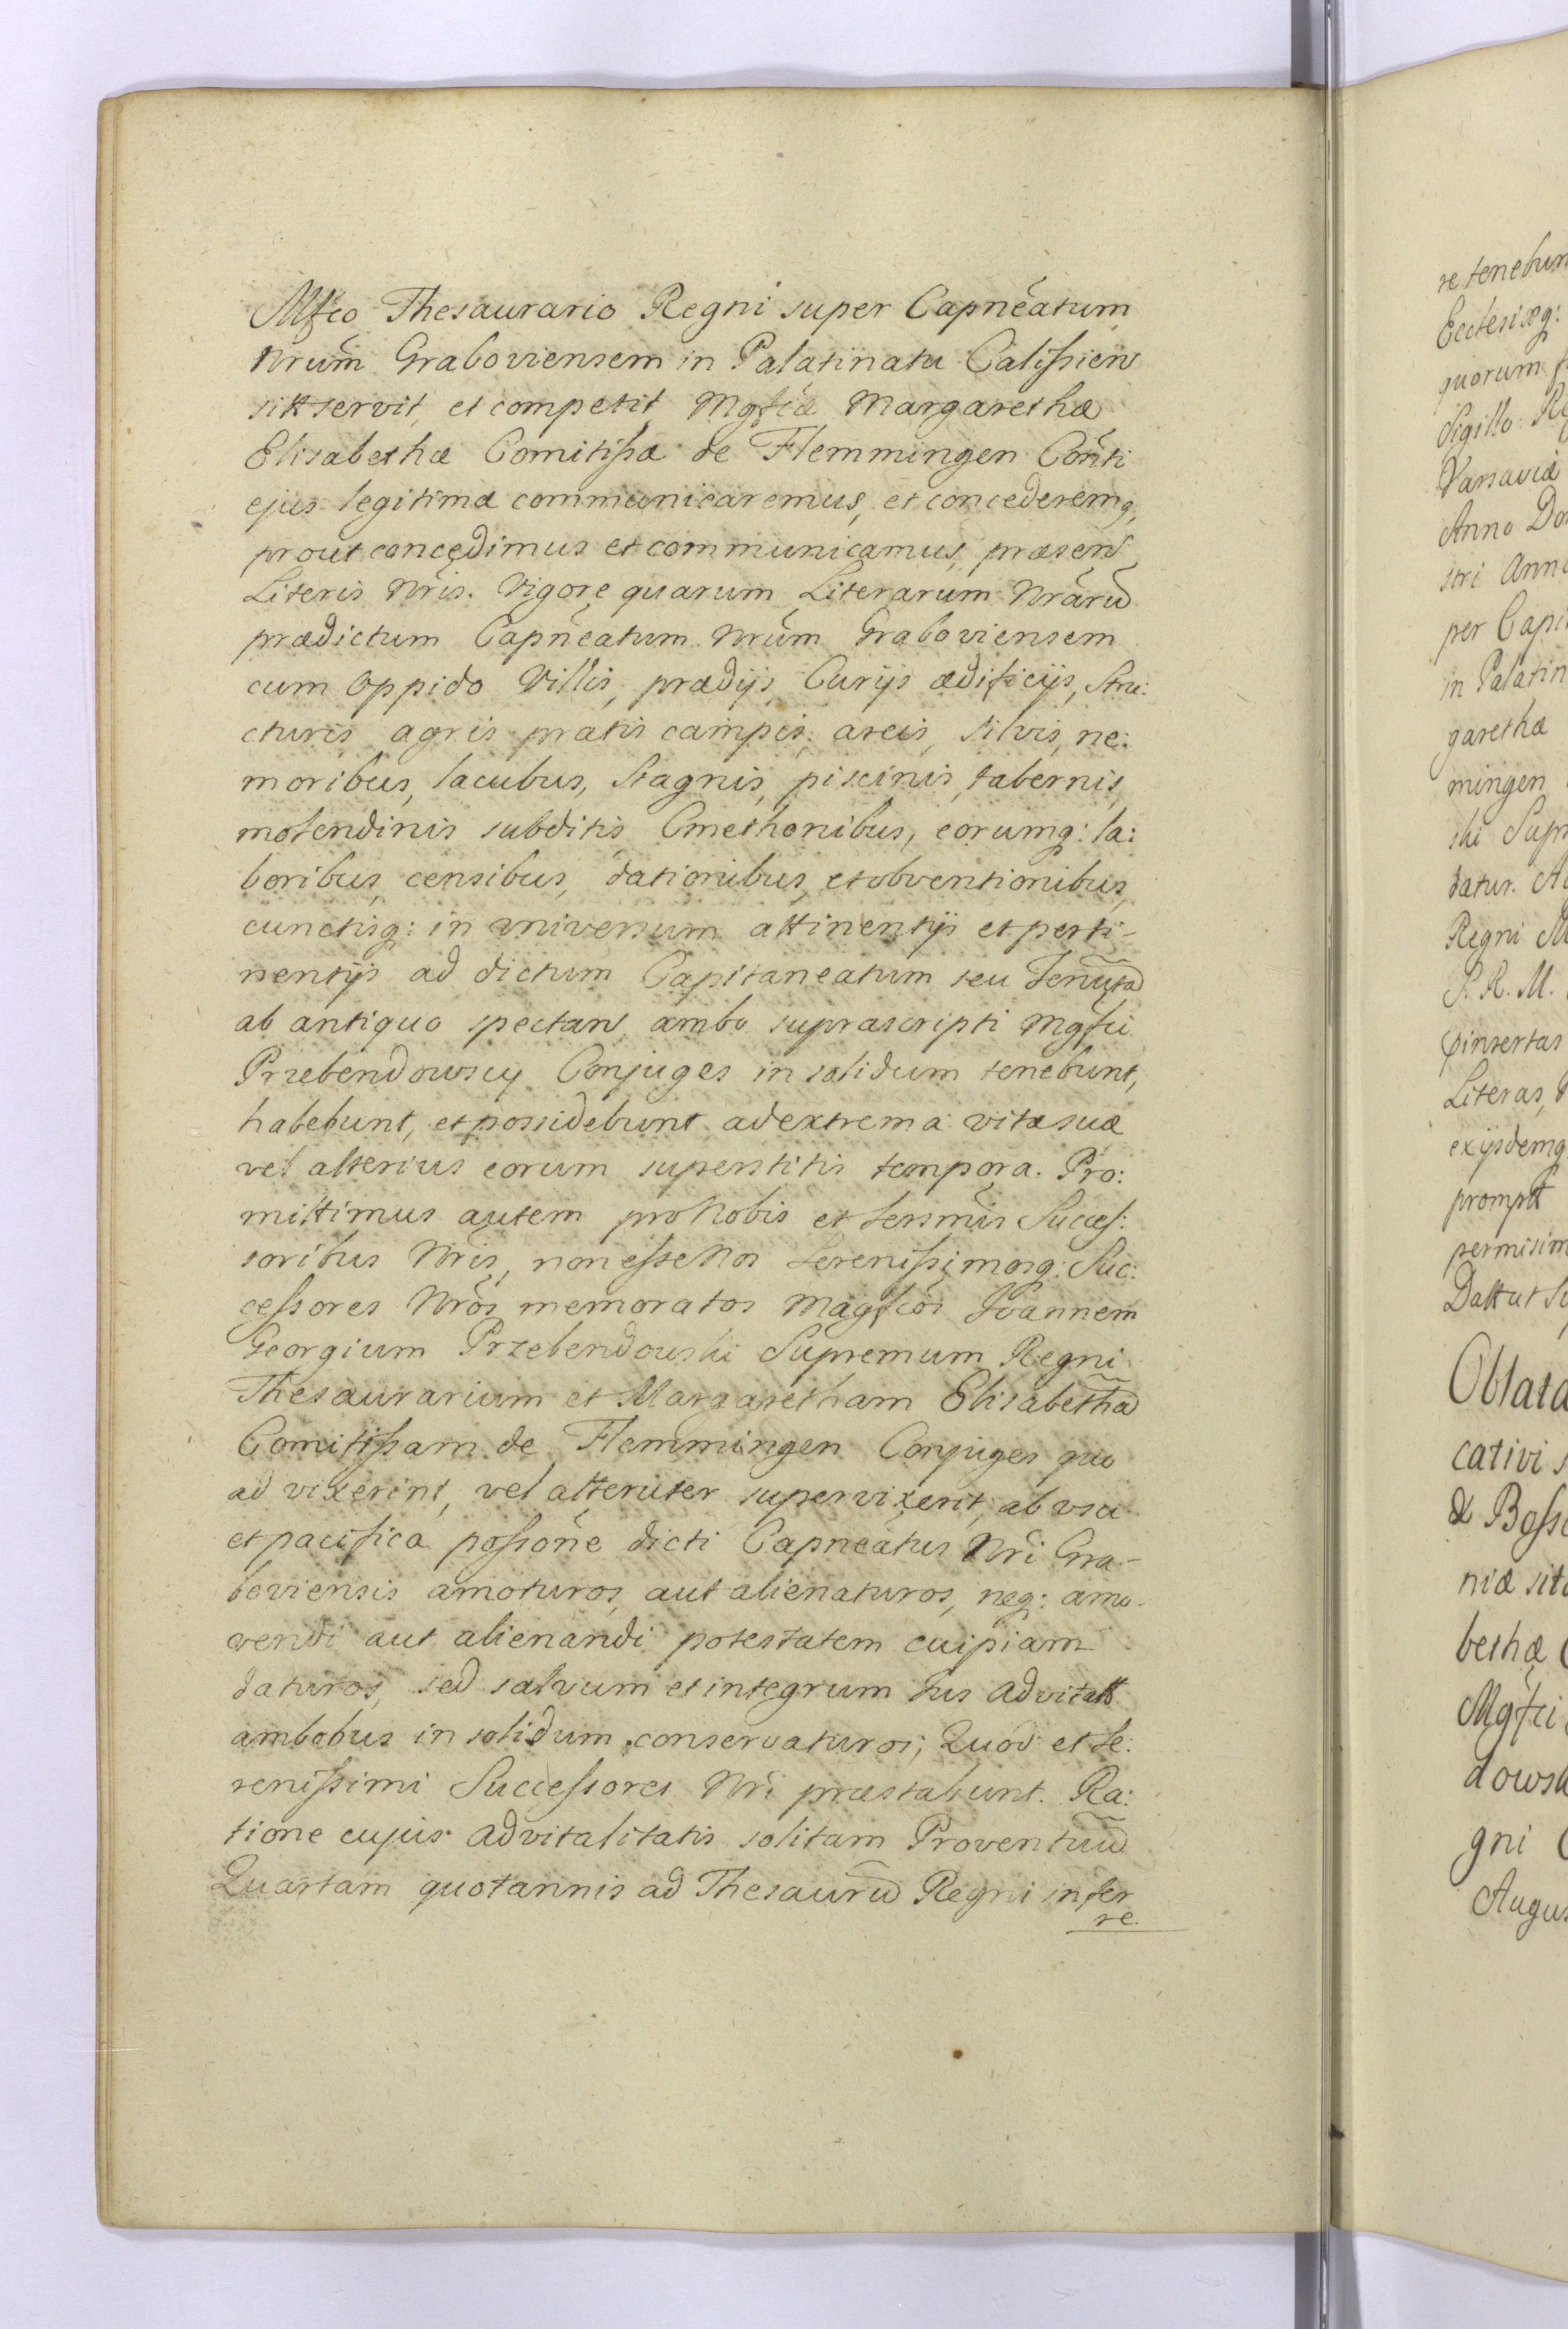 Mfco Thesaurario Regni super Capnẽatum
Nrũm Graboviensem in Palatinatu Calissien
sitt servit, et competit, Mgfcæ Margarethæ
Elisabethæ Comitissæ de Flemmingen Cõnti
ejus legitimæ communicaremus, et concederemq,
prout concedimus et communicamus, præsen
Literis Nrĩs. Vigore quarum Literarum Nrãrũ
prædictum Capnẽatum Nrũm Graboviensem
cum Oppido Villis, prædijs, Curijs ædificijs, Stru:
cturis agris pratis campis, areis, silvis, ne:
moribus, lacubus, Stagnis, piscinis, tabernis,
molendinis subditis Cmethonibus, eorumq: la:
boribus, censibus, dationibus, et obventionibus,
cunctisq: in universum attinentijs et perti-
nentijs ad dictum Capitaneatum seu Tenutã
ab antiquo spectan ambo suprascripti Mgfci
Przebendowscy Conjuges in solidum tenebunt,
habebunt, et possidebunt ad extrema vitæ suæ
vel alterius eorum superstitis tempora. Pro:
mittimus autem pro Nobis et Sersmĩs Succes:
soribus Nrĩs, non esse Nos Serenissimosq: Suc:
cessores Nrõs memoratos Magfcos Joannem
Georgium Przebendowski Supremum Regni
Thesaurarium et Margaretham Elisabethã
Comitissam de Flemmingen Conjuges quo
ad vixerint, vel alteruter supervixerit, ab usu
et pacifica possiõne dicti Capnẽatus Nrĩ Gra-
boviensis amoturos, aut alienaturos, neq: amo-
vendi aut alienandi potestatem cuipiam
daturos, sed salvum et integrum Jus advitatt
ambobus in solidum conservaturos; Quod et Se:
renissimi Successores Nrĩ præstabunt. Ra:
tione cujus advitalitatis solitam Proventuũ
Quartam quotannis ad Thesaurũ Regni infer
re.
re tenebun
Ecclesiæq:
quorum
Sigillo
Varsaviæ
Anno Do
stri Anno
per Capi
in Palatin
garethæ
mingen
ski Supr
datur.
Regni
S. R. M.
insertas
Literas,
exijsdemq
prompt
permisim
Oblata
cativi
& Boss
niæ sit
bethæ
Mgfci
dowsk
gni
Augus